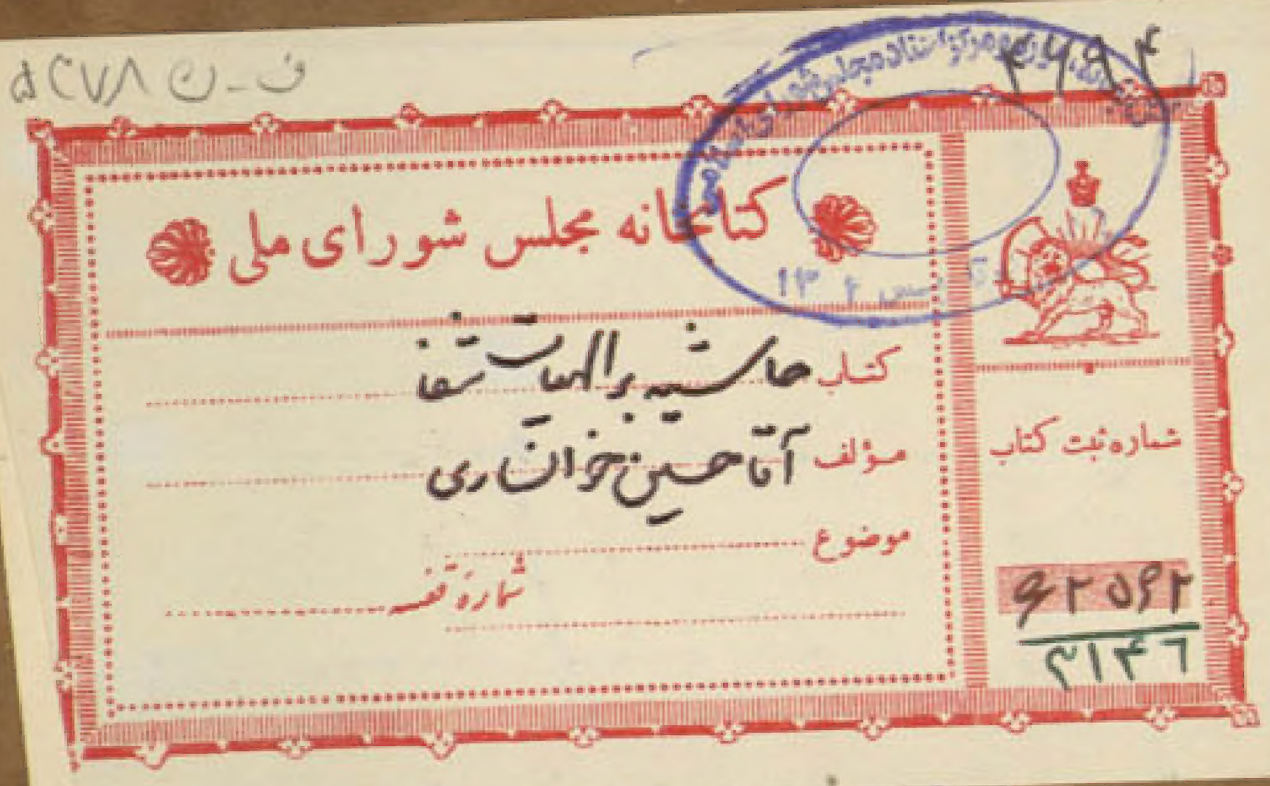 ف - ن ۵۲۷۸
کتابخانه مجلس شورای ملی
کتاب حاشیه بر الهیات شفا
مؤلف آقا حسین خوانساری
موضوع
شمارهٔ قفسه
شماره ثبت کتاب
۶۲۵۶۲
۳۱۴۶